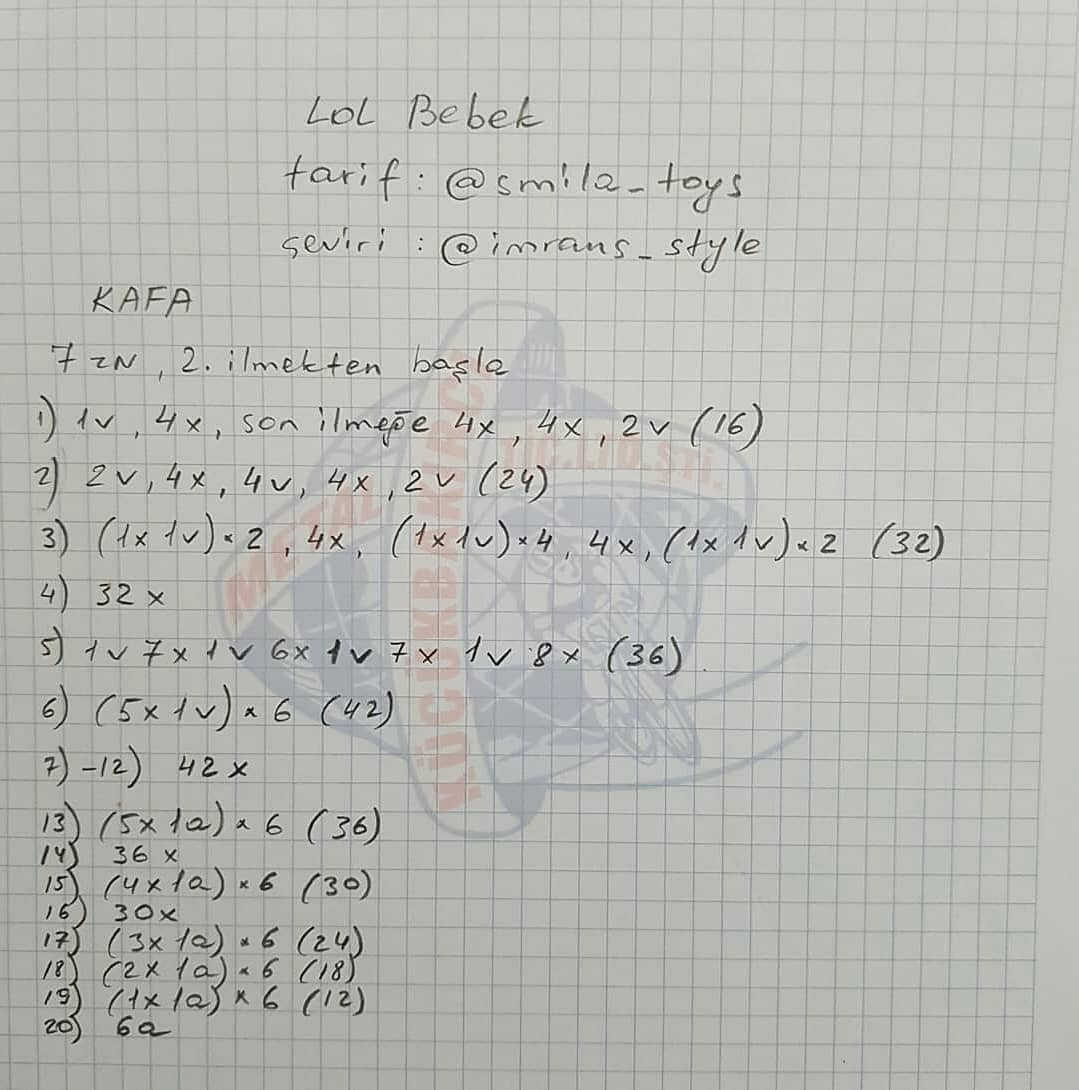 LOL Bebek
tarif: @smila_toys
çeviri : @imrans_style
KAFA
7 zN, 2. ilmekten başla
1) 1v, 4x, son ilmeğe 4x, 4x, 2v (16)
2) 2v, 4x, 4v, 4x, 2v (24)
3) (1x 1v)×2, 4x, (1x1v)×4, 4x, (1x 1v)×2 (32)
4) 32 x
5) 1v 7x 1v 6x 1v 7x 1v 8x (36)
6) (5x 1v)×6 (42)
7)-12) 42 x
13) (5x 1a)×6 (36)
14) 36 x
15) (4x1a)×6 (30)
16) 30x
17) (3x 1a)×6 (24)
18) (2x 1a)×6 (18)
19) (1x 1a)×6 (12)
20) 6a
METAL
KÜÇÜKBAKIRCI
TİC.LTD.ŞTİ.